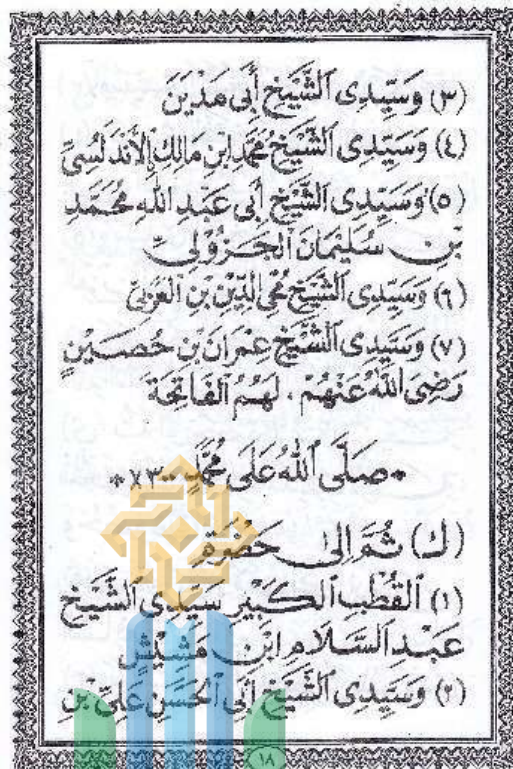 (٣) وَسَيِّدِى ٱلشَّيْخِ أَبِى مَدْيَنَ
(٤) وَسَيِّدِى ٱلشَّيْخِ مُحَمَّدِ ابْنِ مَالِكِ ٱلْأَنْدَلُسِىِّ
(٥) وَسَيِّدِى ٱلشَّيْخِ أَبِى عَبْدِ اللهِ مُحَمَّدِ
بْنِ سُلَيْمَانَ ٱلْجَزُوْلِىِّ
(٦) وَسَيِّدِى ٱلشَّيْخِ مُحْىِ الدِّيْنِ بْنِ الْعَرَبِىِّ
(٧) وَسَيِّدِى ٱلشَّيْخِ عِمْرَانَ بْنِ حُصَيْنٍ
رَضِىَ اللهُ عَنْهُمْ . لَهُمُ ٱلْفَاتِحَةَ
*صَلَّى ٱللهُ عَلَى مُحَمَّدٍ - ٣×*
(ك) ثُمَّ اِلىٰ حَضْرَةِ
(١) ٱلْقُطْبِ ٱلْكَبِيْرِ سَيِّدِى ٱلشَّيْخِ
عَبْدِ ٱلسَّلَامِ ابْنِ مَشِيْشٍ
(٢) وَسَيِّدِى ٱلشَّيْخِ اَبِى ٱلْحَسَنِ عَلِىِّ بْنِ
١٨